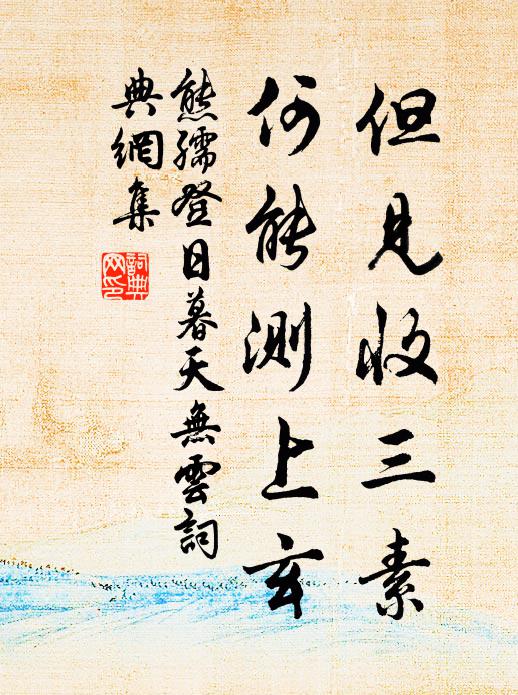 但見收三素
何能測上玄
熊孺登日暮天無雲詞
典網集
詞典網印